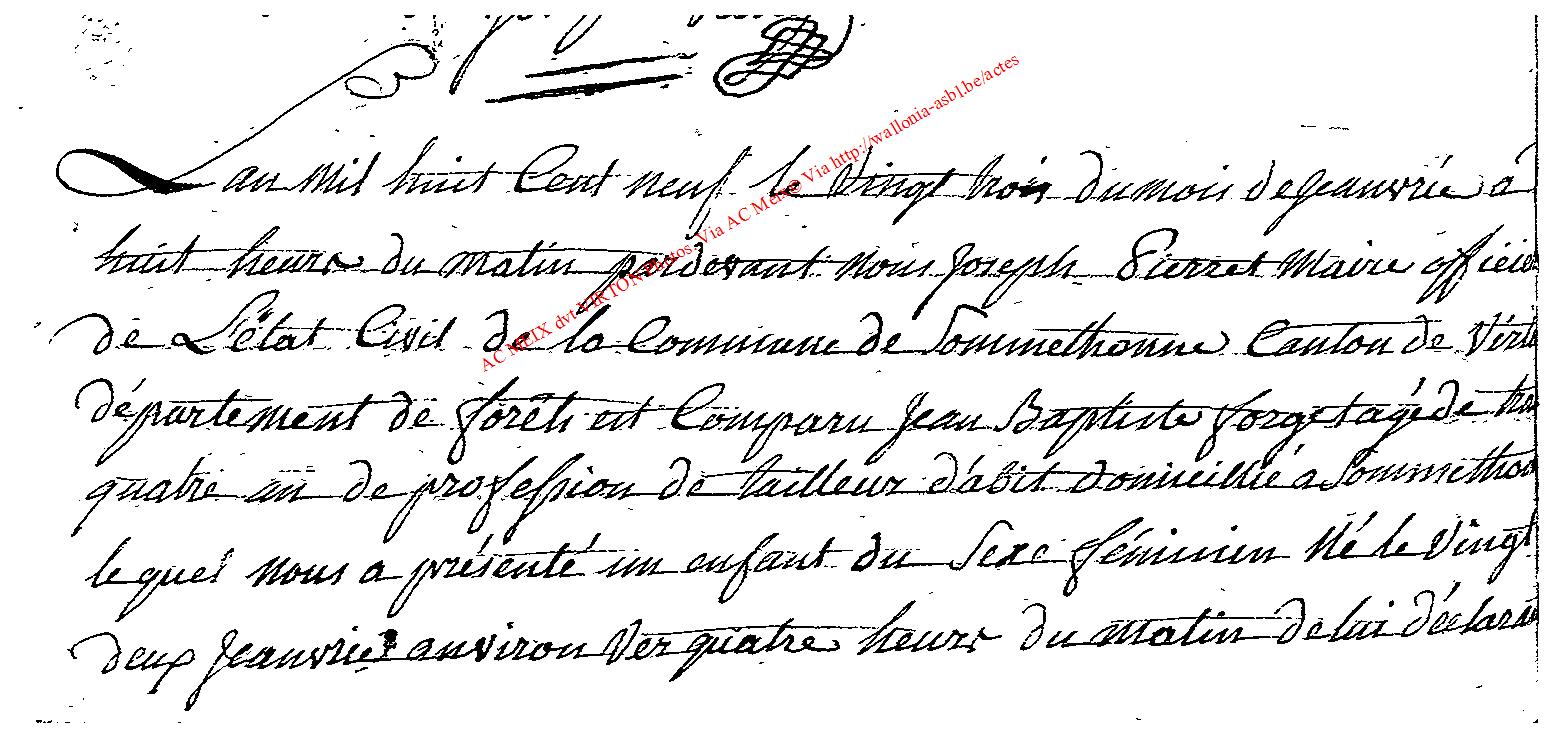 Lan mil huit Cent neuf le Vingt trois du mois de Jeanvrie à
huit heurs du matin pardevant nous Joseph Pierret Maire officie
de L'état Civil de la Commune de Sommethonne Canton de Virt
département de forêts est Comparu Jean Baptiste forget agé de tra
quatre an de profession de tailleur d'abit domicillié a Sommethon
le quel nous a présenté un enfant du Sexe féminin Né le Vingt
deux Jeanvrier anviron Ver quatre heurs du matin de lui déclaran
AC MEIX dvt VIRTON Photos. Via AC Meix Via http://wallonia-asbl.be/actes